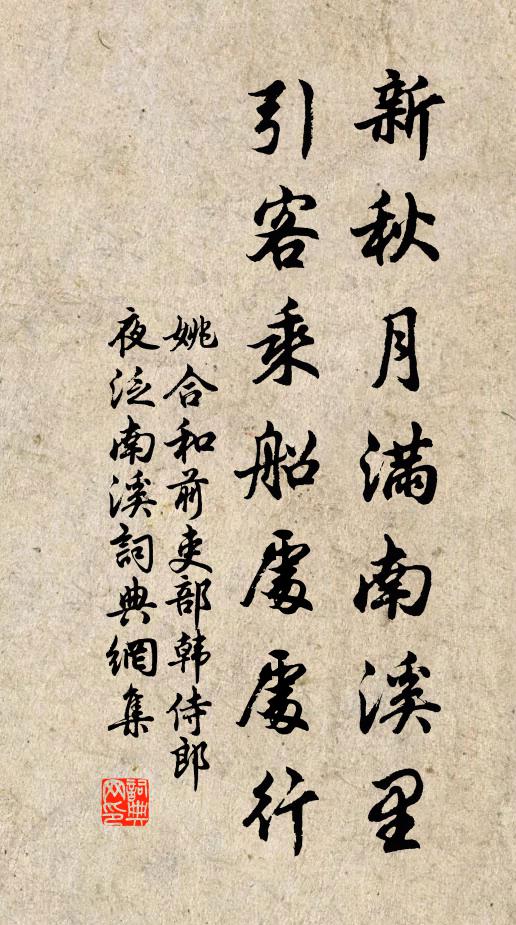 新秋月滿南溪里
引客乘船處處行
姚合和前吏部韩侍郎
夜泛南溪詞典網集
詞典
网印